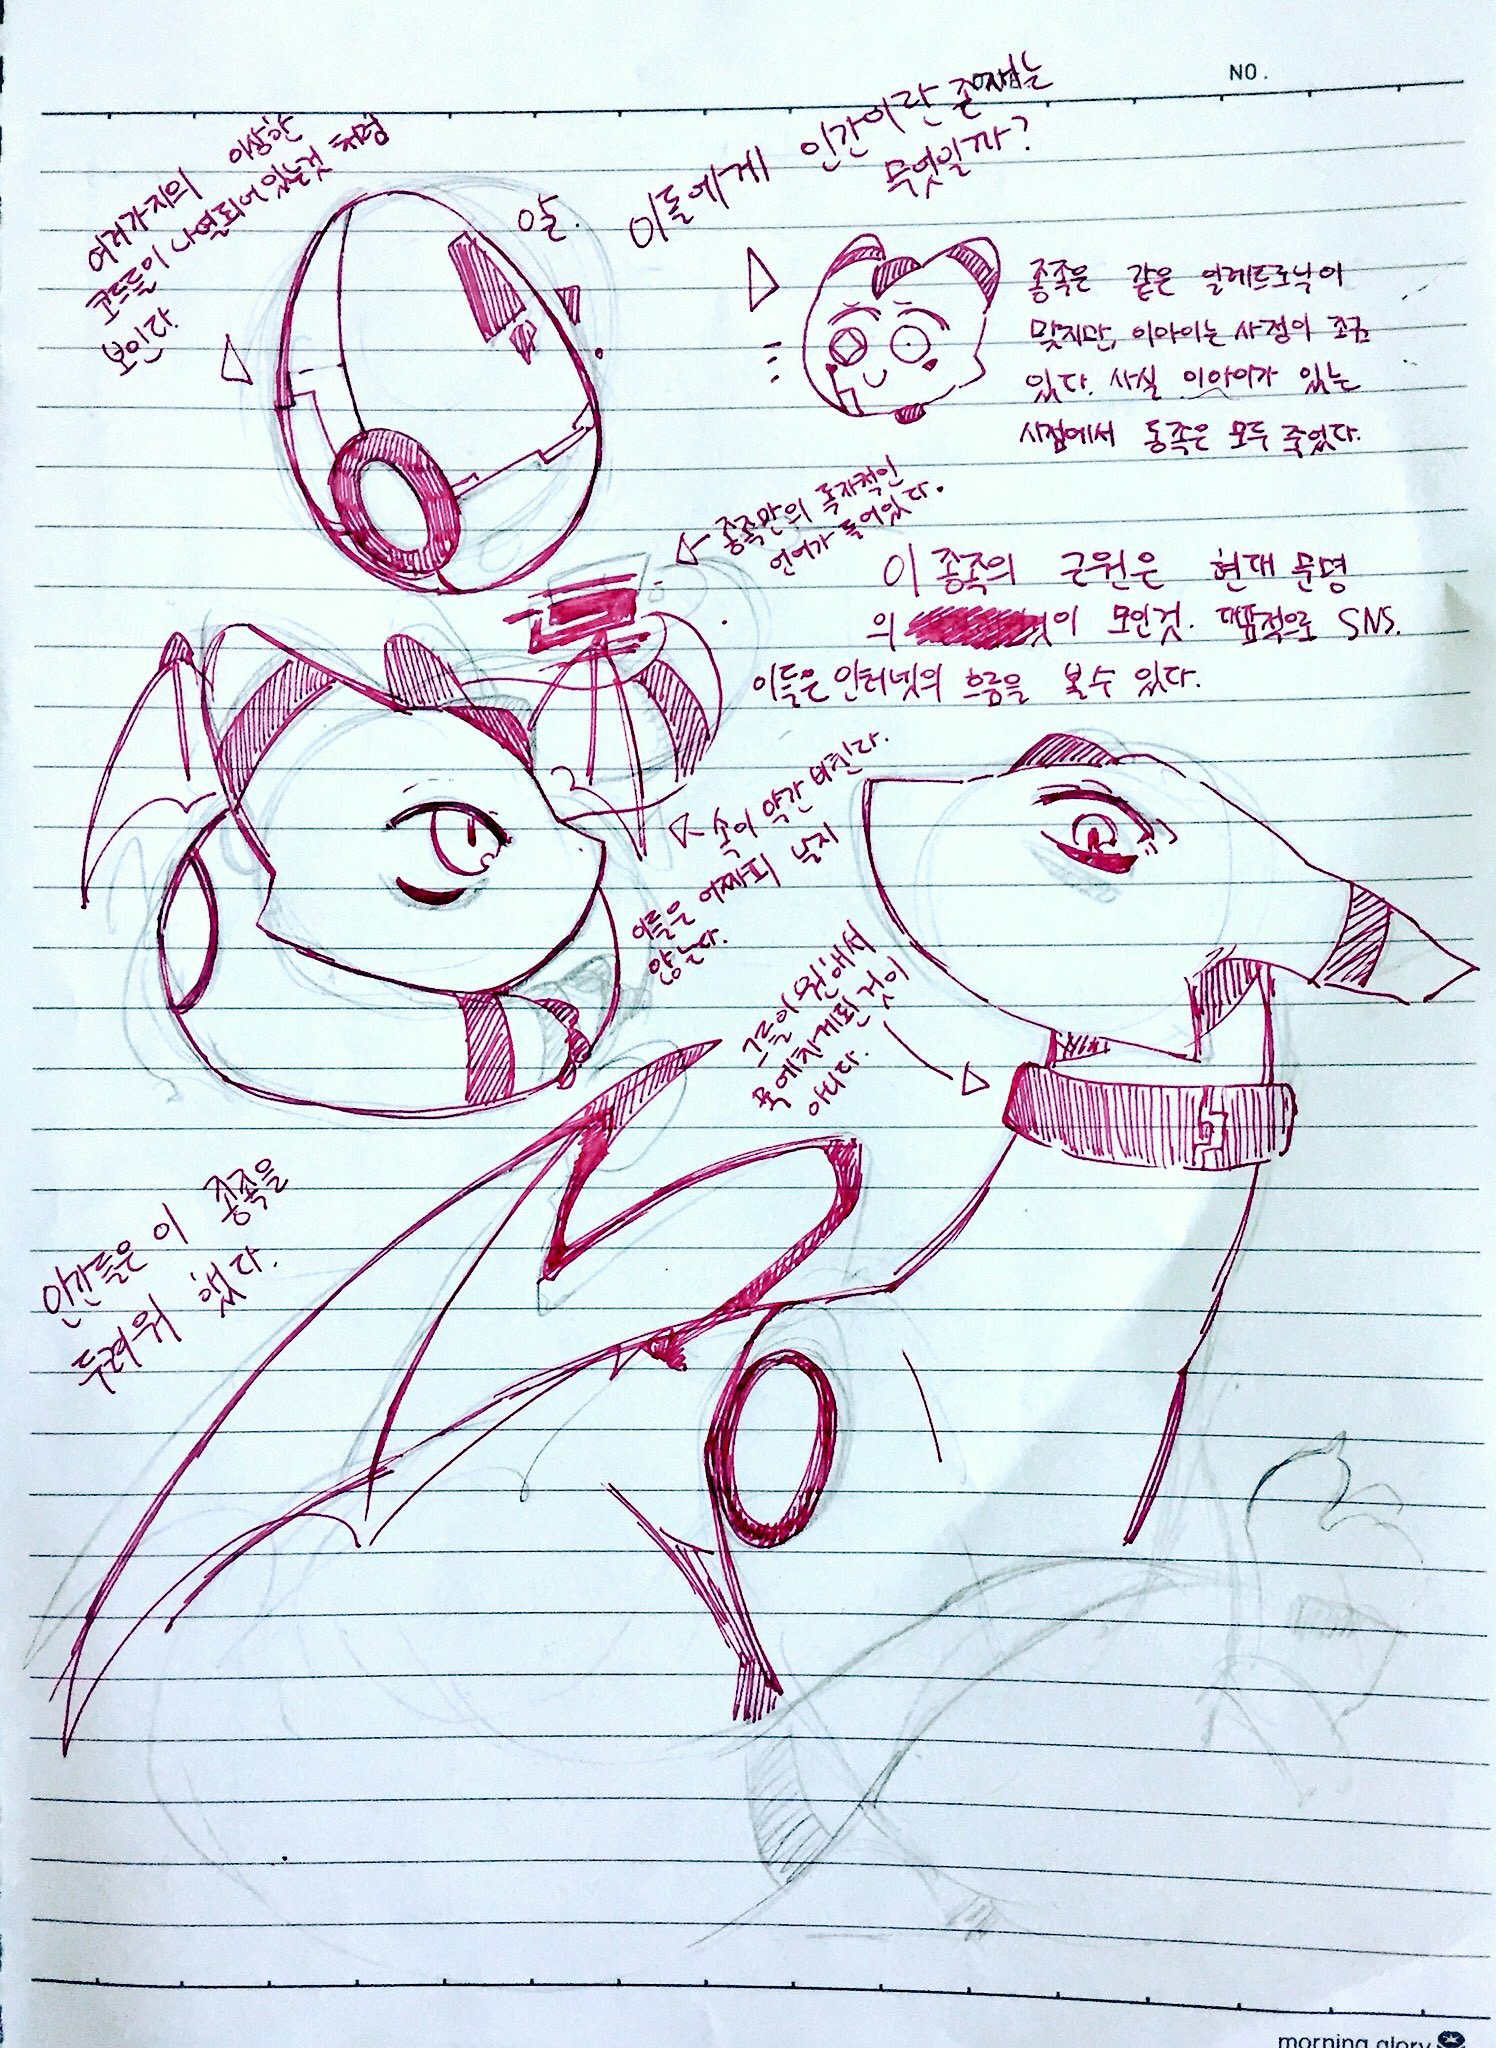 NO.
이들에게 인간이란 존재는
무엇일까?
여러가지의 이상한
코드들이 나열되어 있는것 처럼
보인다.
알.
종족은 같은 일레트로닉이
맞지만, 이아이는 사정이 조금
있다. 사실 이아이가 있는
시점에서 동족은 모두 죽었다.
종족만의 독자적인
언어가 들어있다.
이 종족의 근원은 현대 문명
의 이 모인것. 대표적으로 SNS.
이들은 인터넷의 흐름을 볼수 있다.
속이 약간 비친다.
이들은 어짜피 날지
않는다.
그들이 원해서
목에차게된 것이
아니다.
인간들은 이 종족을
두려워 했다.
morning glory